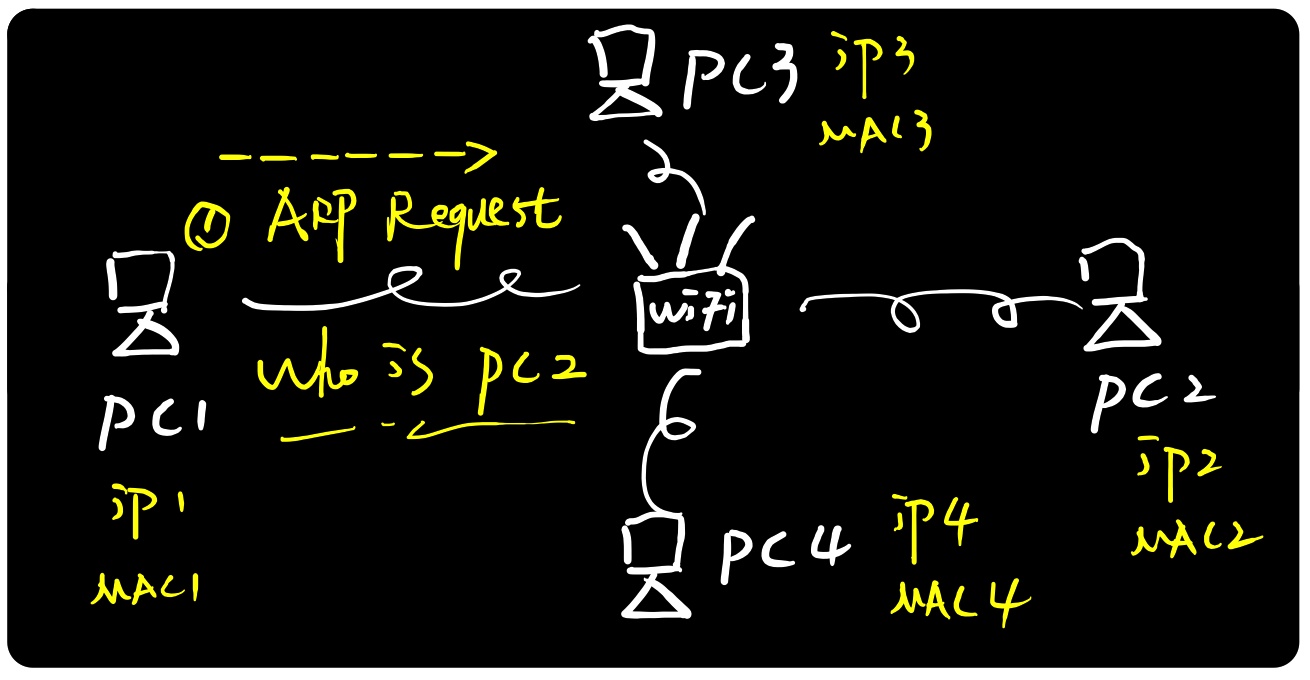 PC3
iP3
MAC3
① ARP Request
WiFi
Who is PC2
PC1
iP1
MAC1
PC2
iP2
MAC2
PC4
iP4
MAC4